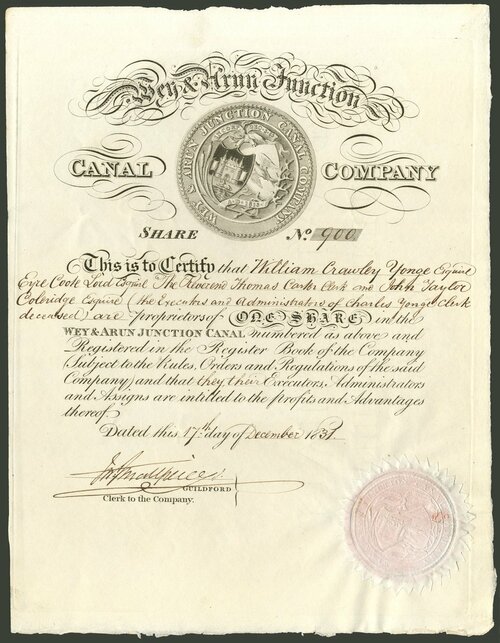 Wey & Arun Junction
CANAL COMPANY
WEY & ARUN JUNCTION CANAL COMPANY
SHARE No. 900
This is to Certify that William Crawley Yonge Esquire
Eyre Coote Lord Esquire The Reverend Thomas Carter Clerk and John Taylor
Coleridge Esquire (the Executors and Administrators of Charles Yonge Clerk
deceased) are proprietors of ONE SHARE in the
WEY & ARUN JUNCTION CANAL numbered as above and
Registered in the Register Book of the Company
(Subject to the Rules, Orders and Regulations of the said
Company) and that they their Executors, Administrators
and Assigns are intitled to the profits and Advantages
thereof.
Dated this 17th day of December 1831
GUILDFORD
Clerk to the Company.